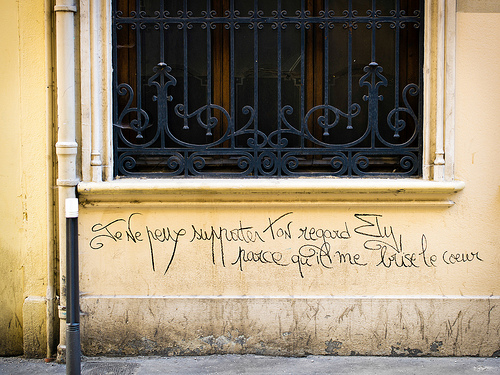 Je Ne peux supporter ton regard Ely,
parce qu'il me brise le coeur